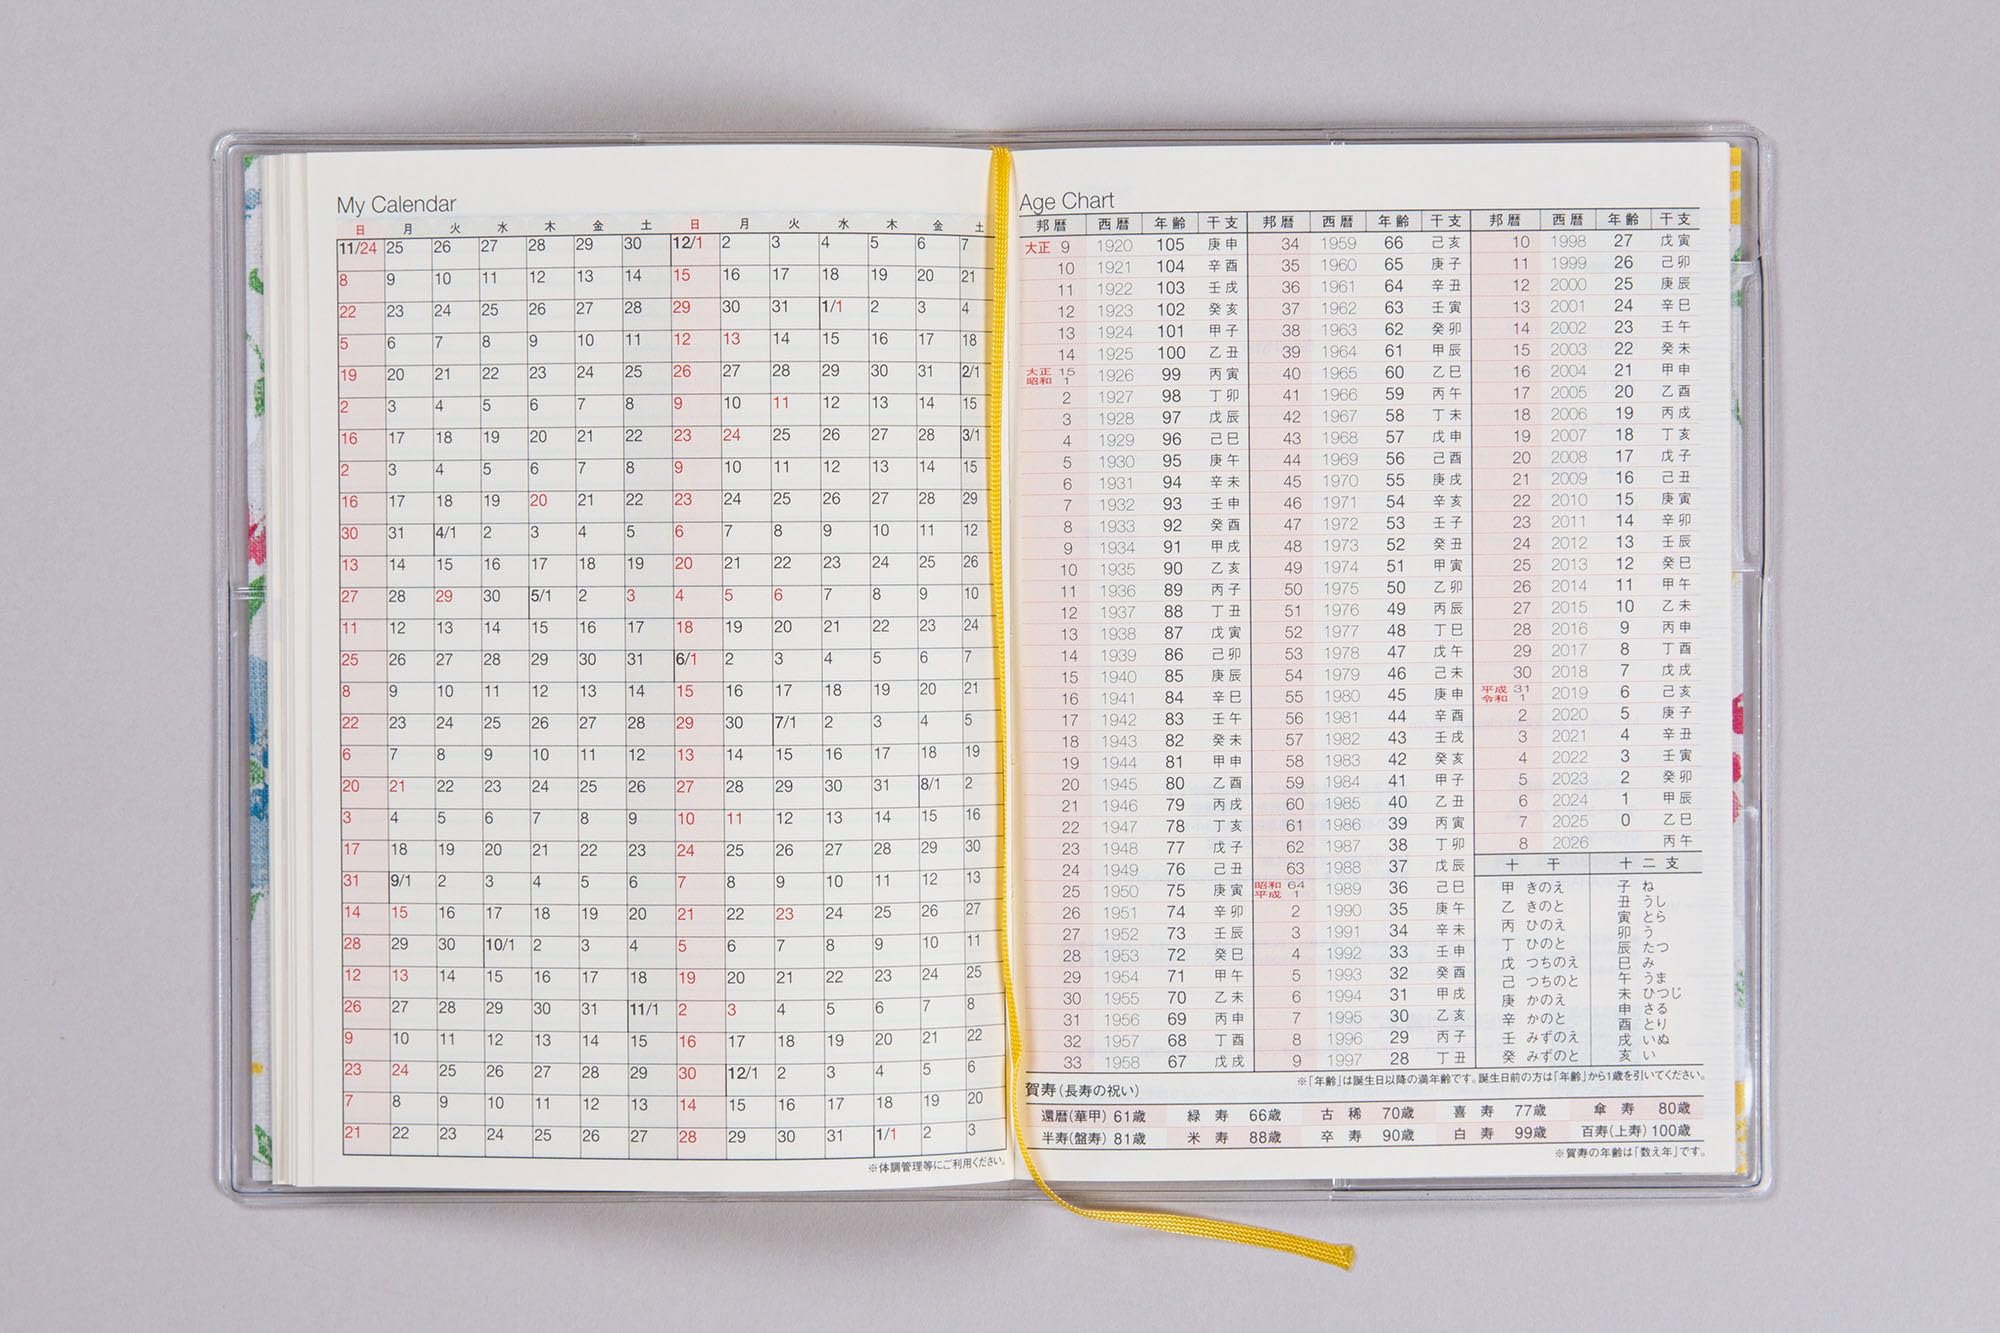 My Calendar
日 月 火 水 木 金 土 日 月 火 水 木 金 土
11/24 25 26 27 28 29 30 12/1 2 3 4 5 6 7
8 9 10 11 12 13 14 15 16 17 18 19 20 21
22 23 24 25 26 27 28 29 30 31 1/1 2 3 4
5 6 7 8 9 10 11 12 13 14 15 16 17 18
19 20 21 22 23 24 25 26 27 28 29 30 31 2/1
2 3 4 5 6 7 8 9 10 11 12 13 14 15
16 17 18 19 20 21 22 23 24 25 26 27 28 3/1
2 3 4 5 6 7 8 9 10 11 12 13 14 15
16 17 18 19 20 21 22 23 24 25 26 27 28 29
30 31 4/1 2 3 4 5 6 7 8 9 10 11 12
13 14 15 16 17 18 19 20 21 22 23 24 25 26
27 28 29 30 5/1 2 3 4 5 6 7 8 9 10
11 12 13 14 15 16 17 18 19 20 21 22 23 24
25 26 27 28 29 30 31 6/1 2 3 4 5 6 7
8 9 10 11 12 13 14 15 16 17 18 19 20 21
22 23 24 25 26 27 28 29 30 7/1 2 3 4 5
6 7 8 9 10 11 12 13 14 15 16 17 18 19
20 21 22 23 24 25 26 27 28 29 30 31 8/1 2
3 4 5 6 7 8 9 10 11 12 13 14 15 16
17 18 19 20 21 22 23 24 25 26 27 28 29 30
31 9/1 2 3 4 5 6 7 8 9 10 11 12 13
14 15 16 17 18 19 20 21 22 23 24 25 26 27
28 29 30 10/1 2 3 4 5 6 7 8 9 10 11
12 13 14 15 16 17 18 19 20 21 22 23 24 25
26 27 28 29 30 31 11/1 2 3 4 5 6 7 8
9 10 11 12 13 14 15 16 17 18 19 20 21 22
23 24 25 26 27 28 29 30 12/1 2 3 4 5 6
7 8 9 10 11 12 13 14 15 16 17 18 19 20
21 22 23 24 25 26 27 28 29 30 31 1/1 2 3
※体調管理等にご利用ください。
Age Chart
邦暦 西暦 年齢 干支
大正 9 1920 105 庚申
10 1921 104 辛酉
11 1922 103 壬戌
12 1923 102 癸亥
13 1924 101 甲子
14 1925 100 乙丑
大正 15 昭和 1 1926 99 丙寅
2 1927 98 丁卯
3 1928 97 戊辰
4 1929 96 己巳
5 1930 95 庚午
6 1931 94 辛未
7 1932 93 壬申
8 1933 92 癸酉
9 1934 91 甲戌
10 1935 90 乙亥
11 1936 89 丙子
12 1937 88 丁丑
13 1938 87 戊寅
14 1939 86 己卯
15 1940 85 庚辰
16 1941 84 辛巳
17 1942 83 壬午
18 1943 82 癸未
19 1944 81 甲申
20 1945 80 乙酉
21 1946 79 丙戌
22 1947 78 丁亥
23 1948 77 戊子
24 1949 76 己丑
25 1950 75 庚寅
26 1951 74 辛卯
27 1952 73 壬辰
28 1953 72 癸巳
29 1954 71 甲午
30 1955 70 乙未
31 1956 69 丙申
32 1957 68 丁酉
33 1958 67 戊戌
邦暦 西暦 年齢 干支
34 1959 66 己亥
35 1960 65 庚子
36 1961 64 辛丑
37 1962 63 壬寅
38 1963 62 癸卯
39 1964 61 甲辰
40 1965 60 乙巳
41 1966 59 丙午
42 1967 58 丁未
43 1968 57 戊申
44 1969 56 己酉
45 1970 55 庚戌
46 1971 54 辛亥
47 1972 53 壬子
48 1973 52 癸丑
49 1974 51 甲寅
50 1975 50 乙卯
51 1976 49 丙辰
52 1977 48 丁巳
53 1978 47 戊午
54 1979 46 己未
55 1980 45 庚申
56 1981 44 辛酉
57 1982 43 壬戌
58 1983 42 癸亥
59 1984 41 甲子
60 1985 40 乙丑
61 1986 39 丙寅
62 1987 38 丁卯
63 1988 37 戊辰
昭和 64 平成 1 1989 36 己巳
2 1990 35 庚午
3 1991 34 辛未
4 1992 33 壬申
5 1993 32 癸酉
6 1994 31 甲戌
7 1995 30 乙亥
8 1996 29 丙子
9 1997 28 丁丑
邦暦 西暦 年齢 干支
10 1998 27 戊寅
11 1999 26 己卯
12 2000 25 庚辰
13 2001 24 辛巳
14 2002 23 壬午
15 2003 22 癸未
16 2004 21 甲申
17 2005 20 乙酉
18 2006 19 丙戌
19 2007 18 丁亥
20 2008 17 戊子
21 2009 16 己丑
22 2010 15 庚寅
23 2011 14 辛卯
24 2012 13 壬辰
25 2013 12 癸巳
26 2014 11 甲午
27 2015 10 乙未
28 2016 9 丙申
29 2017 8 丁酉
30 2018 7 戊戌
平成 31 令和 1 2019 6 己亥
2 2020 5 庚子
3 2021 4 辛丑
4 2022 3 壬寅
5 2023 2 癸卯
6 2024 1 甲辰
7 2025 0 乙巳
8 2026 丙午
十干
甲 きのえ
乙 きのと
丙 ひのえ
丁 ひのと
戊 つちのえ
己 つちのと
庚 かのえ
辛 かのと
壬 みずのえ
癸 みずのと
十二支
子 ね
丑 うし
寅 とら
卯 う
辰 たつ
巳 み
午 うま
未 ひつじ
申 さる
酉 とり
戌 いぬ
亥 い
※「年齢」は誕生日以降の満年齢です。誕生日前の方は「年齢」から1歳を引いてください。
賀寿(長寿の祝い)
還暦(華甲) 61歳 緑寿 66歳 古稀 70歳 喜寿 77歳 傘寿 80歳
半寿(盤寿) 81歳 米寿 88歳 卒寿 90歳 白寿 99歳 百寿(上寿) 100歳
※賀寿の年齢は「数え年」です。